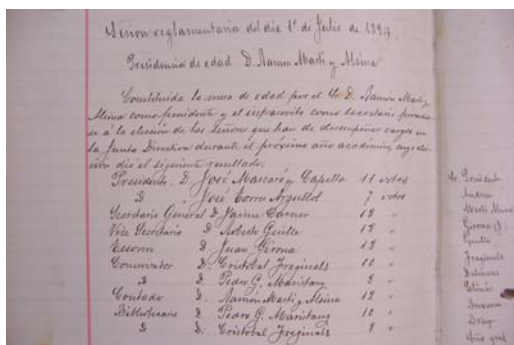 Sesion reglamentaria del dia 1º de Julio de 1894
Presidencia de edad D. Ramon Marti y Alsina
Constituida la mesa de edad por el Sr. D. Ramon Marti y
Alsina como presidente y el infrascrito como secretario procedio
se á la eleccion de los señores que han de desempeñar cargos en
la Junta Directiva durante el próximo año académico, cuya elec
cion dió el siguiente resultado.
Presidente D. José Mascaró y Capella 11 votos
D José Torres Argullol 7 votos
Secretario General D Jaime Carner 18 "
Vice Secretario D. Roberto Guille 18 "
Tesorero D. Juan Girona 18 "
Conservador D. Cristobal Fraginals 10 "
D. Pedro G. Maristany 8 "
Contador D. Ramon Marti y Alsina 18 "
Bibliotecario D. Pedro G. Maristany 10 "
D D. Cristobal Fraginals 8 "
Sr. Presidente
Andreu
Marti Alsina
Girona (J)
Guille
Fraginals